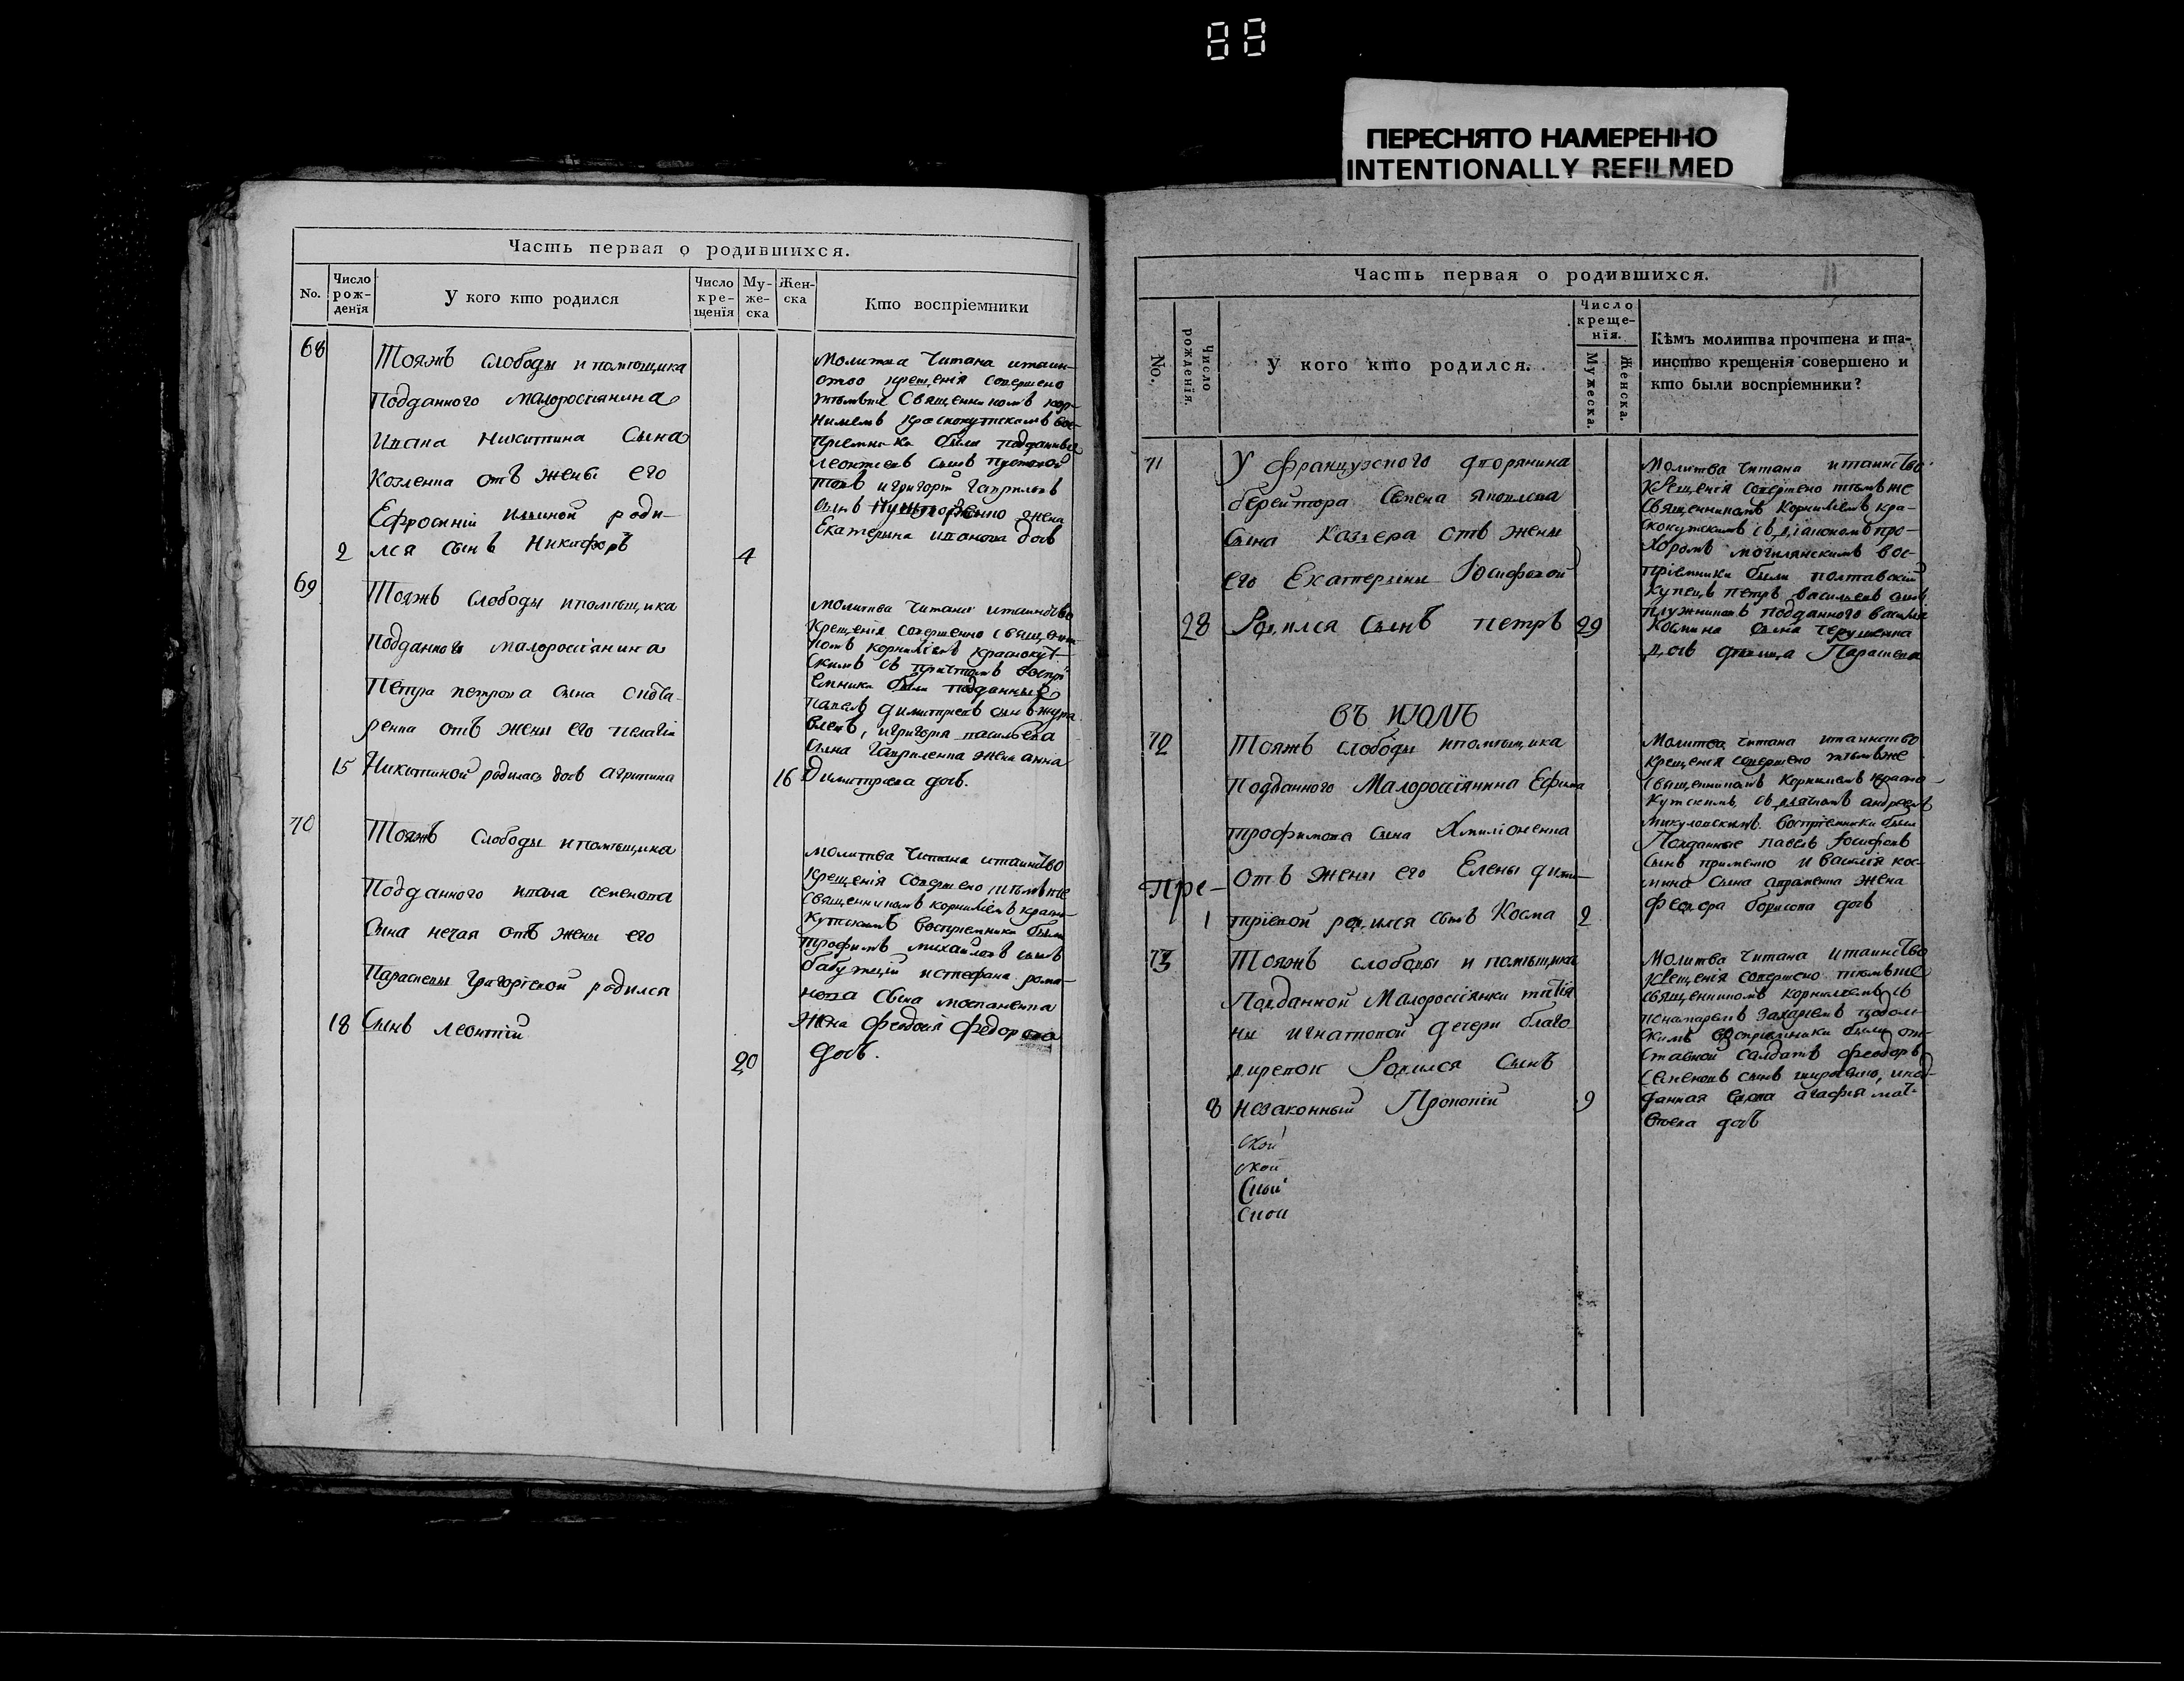 88
ПЕРЕСНЯТО НАМЕРЕННО
INTENTIONALLY REFILMED
Часть первая о родившихся.
No.
Число рож-денїя
У кого кто родился
Число кре-щенїя
Му-же-ска
Жен-ска
Кто воспрїемники
68
Тояжъ слободы и помѣщика
Подданного малороссіянина
Ивана Никитина Сына
Козленка отъ жены его
Ефросиніи Ильиной роди-
2 лся сынъ Никифоръ 4
Молитва читана и таин-
ство крещенія совершено
тѣмъже Священникомъ кор-
нилиемъ краснокутскимъ вос-
приемники были подданные
леонтией сынъ
и григорій гаврилов
сынъ жена
Екатерина иванова дочь
69
Тояжъ слободы и помѣщика
Подданного малороссіянина
Петра петрова сына
ренка отъ жены его пелагіи
15 Никитиной родилась дочь агрипина 16
молитва читана и таинство
крещенія совершенно священ-
комъ корниліемъ краснокут-
скимъ съ причтомъ воспрі-
емники были подданные
павелъ димитриевъ сынъ жура
влевъ, и григорія васильева
сына гавриленка жена анна
Димитриева дочь.
70
Тояжъ слободы и помѣщика
Подданного ивана семенова
Сына нечая отъ жены его
Параскевы григоріевой родился
18 Сынъ леонтій 20
молитва читана и таинство
крещенія совершено тѣмъже
священникомъ корниліемъ красно-
кутскимъ воспріемники были
трофимъ михайловъ сынъ
и стефана рома-
нова сына
жена феодосія федорова
дочь.
Часть первая о родившихся.
11
No.
Число рожденїя.
У кого кто родился.
Число креще-нїя.
Мужеска.
Женска.
Кѣмъ молитва прочтена и та-
инство крещенїя совершено и
кто были воспрїемники?
71
У французского дворянина
берейтора Семена яковлева
Сына Казиера отъ жены
его Екатерины Іосифовой
28 Родился сынъ петръ 29
Молитва читана и таинство
крещенія совершено тѣмъже
священникомъ корниліемъ кра-
снокутскимъ съ діякономъ про-
хоромъ могилянскимъ вос-
пріемники были полтавскій
купецъ петръ васильевъ сынъ
плужниковъ подданного василія
космина сына
дочь девица Параскева
Въ ИЮЛѢ
72
Тояжъ слободы и помѣщика
подданного Малороссіянина Ефима
трофимова сына Хмиліоненка
Пре-
Отъ жены его Елены дими-
1 тріевой родился сынъ Косма 2
Молитва читана и таинство
крещенія совершено тѣмъже
священникомъ Корнилиемъ красно-
кутскимъ, съ дьячкомъ андреемъ
микулонскимъ. воспріемники были
Подданные павелъ іосифовъ
сынъ и василія кос-
мина сына авраменка жена
феодора борисова дочь
73
Тояжъ слободы и помѣщика
Подданной Малороссіянки татія
ны игнатовой дочери благо
диревой Родился Сынъ
8 незаконный Прокопій 9
Молитва читана и таинство
крещенія совершено тѣмъже
священникомъ корнилиемъ съ
пономаремъ захариемъ подоль-
скимъ воспріемники были от-
ставной салдатъ феодоръ
Семеновъ сынъ, и под-
данная вдова агафія мат-
веева дочь
ской
ской
ской
ской